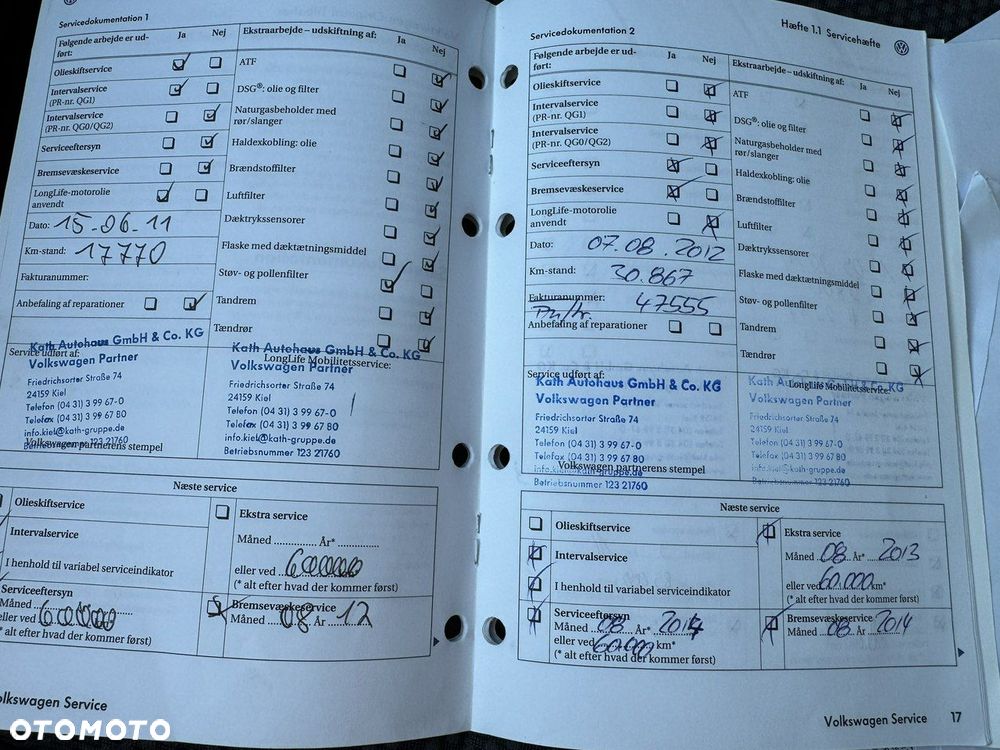 Servicedokumentation 1
Følgende arbejde er ud-
ført:
Ja
Nej
Olieskiftservice
Intervalservice
(PR-nr. QG1)
Intervalservice
(PR-nr. QG0/QG2)
Serviceeftersyn
Bremsevæskeservice
LongLife-motorolie
anvendt
Dato: 15-06-11
Km-stand: 17770
Fakturanummer:
Anbefaling af reparationer
Ekstraarbejde – udskiftning af:
Ja
Nej
ATF
DSG®: olie og filter
Naturgasbeholder med
rør/slanger
Haldexkobling: olie
Brændstoffilter
Luftfilter
Dæktrykssensorer
Flaske med dæktætningsmiddel
Støv- og pollenfilter
Tandrem
Tændrør
Service udført af:
Kath Autohaus GmbH & Co. KG
Volkswagen Partner
Friedrichsorter Straße 74
24159 Kiel
Telefon (04 31) 3 99 67-0
Telefax (04 31) 3 99 67 80
info.kiel@kath-gruppe.de
Betriebsnummer 123 21760
Volkswagen partnerens stempel
LongLife Mobilitetsservice:
Kath Autohaus GmbH & Co. KG
Volkswagen Partner
Friedrichsorter Straße 74
24159 Kiel
Telefon (04 31) 3 99 67-0
Telefax (04 31) 3 99 67 80
info.kiel@kath-gruppe.de
Betriebsnummer 123 21760
Næste service
Olieskiftservice
Intervalservice
I henhold til variabel serviceindikator
Serviceeftersyn
Måned
eller ved
(* alt efter hvad der kommer først)
Ekstra service
Måned ............ År* ..............
eller ved
(* alt efter hvad der kommer først)
Bremsevæskeservice
Måned 08 År 12
Volkswagen Service
Servicedokumentation 2
Hæfte 1.1 Servicehæfte
Følgende arbejde er ud-
ført:
Ja
Nej
Olieskiftservice
Intervalservice
(PR-nr. QG1)
Intervalservice
(PR-nr. QG0/QG2)
Serviceeftersyn
Bremsevæskeservice
LongLife-motorolie
anvendt
Dato: 07.08.2012
Km-stand: 30.867
Fakturanummer: 47555
Anbefaling af reparationer
Ekstraarbejde – udskiftning af:
Ja
Nej
ATF
DSG®: olie og filter
Naturgasbeholder med
rør/slanger
Haldexkobling: olie
Brændstoffilter
Luftfilter
Dæktrykssensorer
Flaske med dæktætningsmiddel
Støv- og pollenfilter
Tandrem
Tændrør
Service udført af:
Kath Autohaus GmbH & Co. KG
Volkswagen Partner
Friedrichsorter Straße 74
24159 Kiel
Telefon (04 31) 3 99 67-0
Telefax (04 31) 3 99 67 80
info.kiel@kath-gruppe.de
Betriebsnummer 123 21760
Volkswagen partnerens stempel
LongLife Mobilitetsservice:
Kath Autohaus GmbH & Co. KG
Volkswagen Partner
Friedrichsorter Straße 74
24159 Kiel
Telefon (04 31) 3 99 67-0
Telefax (04 31) 3 99 67 80
info.kiel@kath-gruppe.de
Betriebsnummer 123 21760
Næste service
Olieskiftservice
Intervalservice
I henhold til variabel serviceindikator
Serviceeftersyn
Måned 08 År* 2014
eller ved 60.000 km*
(* alt efter hvad der kommer først)
Ekstra service
Måned 08 År* 2013
eller ved 60.000 km*
(* alt efter hvad der kommer først)
Bremsevæskeservice
Måned 08 År 2014
Volkswagen Service 17
OTOMOTO